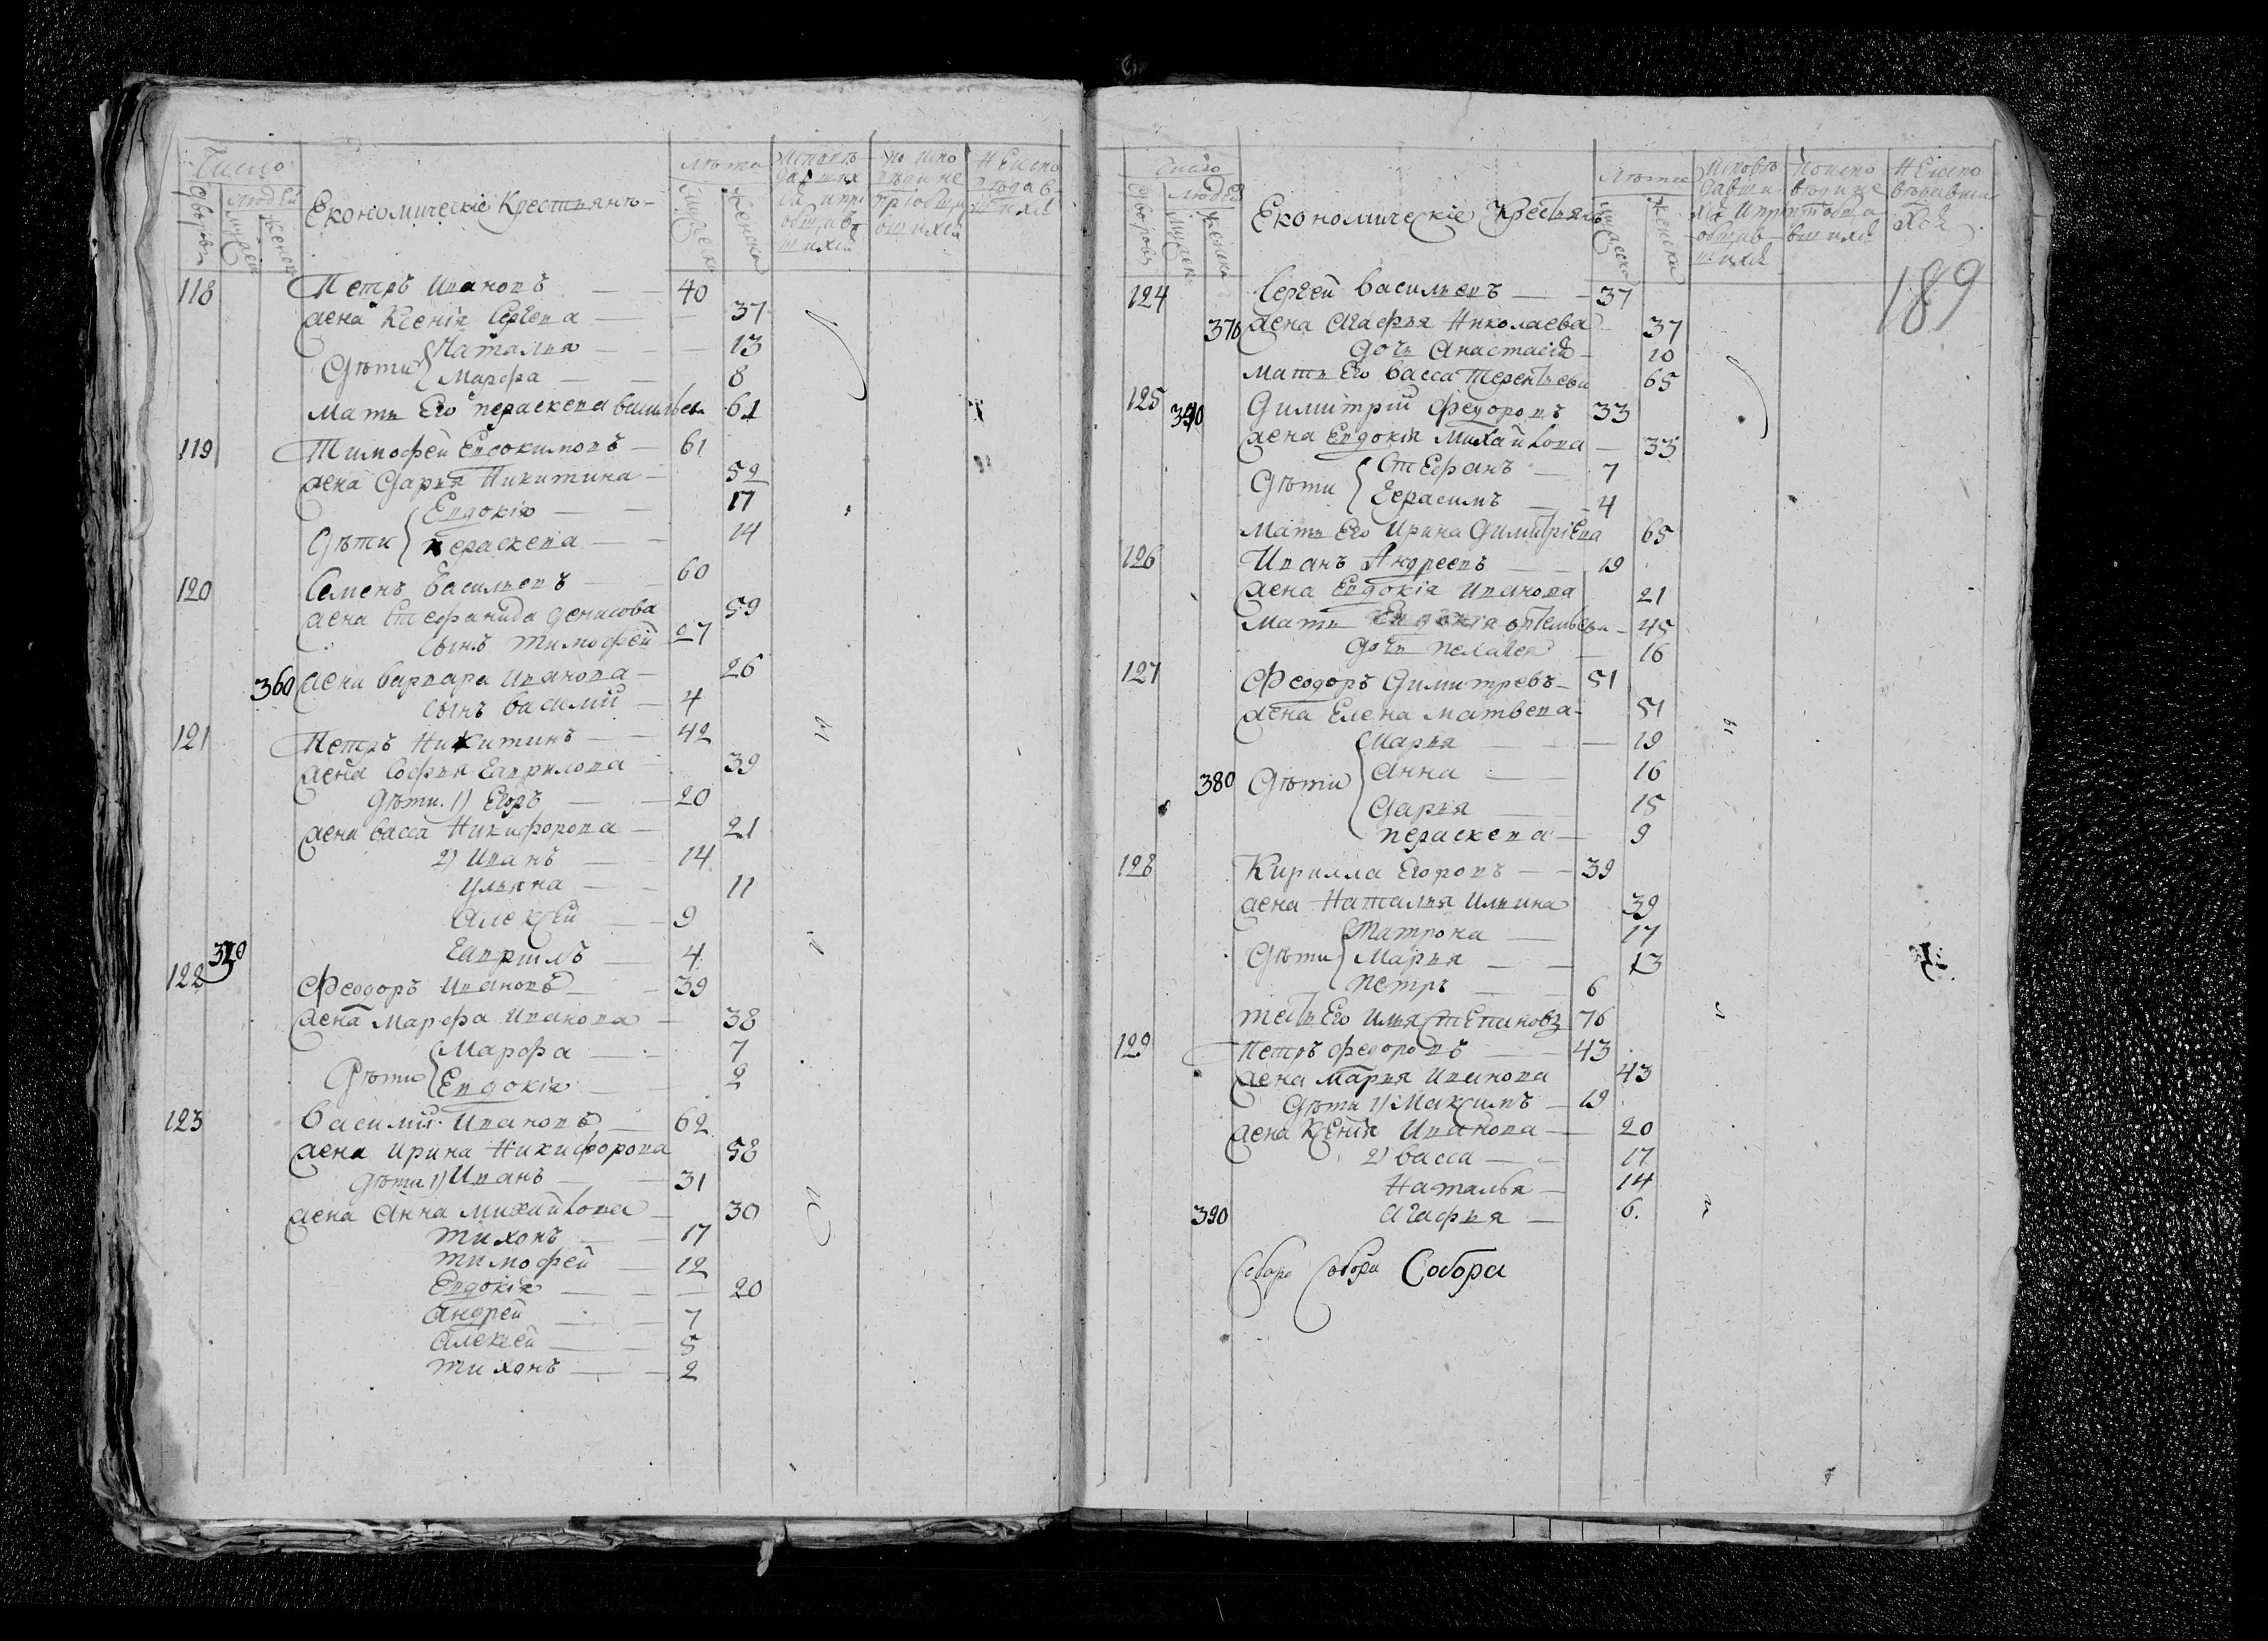 Число
Дворовъ
Людей
Мужеск
Женск
Економическіе Крестьянъ
Лѣта
Мужеска
Женска
118 Петръ Ивановъ 40
жена Ксенія Сергеева 37
Дѣти Наталья 13
Марфа 8
Мать Его Пераскева Васильева 61
119 Тимофей Евдокимовъ 61
жена Дарья Никитина 52
Дѣти Евдокія 17
Пераскева 14
120 Семенъ Васильевъ 60
жена Стефанида Денисова 59
сынъ Тимофей 27
360 жена Варвара Иванова 26
сынъ Василій 4
121 Петръ Никитинъ 42
жена Софья Гаврилова 39
Дѣти. 1) Егоръ 20
жена Васса Никифорова 21
2) Иванъ 14
Ульяна 11
Алексѣй 9
Гаврилъ 4
122 Феодоръ Ивановъ 39
жена Марфа Иванова 38
Дѣти Марфа 7
Евдокія 2
123 Василій Ивановъ 62
жена Ирина Никифорова 58
Дѣти 1) Иванъ 31
жена Анна Михайлова 30
Тихонъ 17
Тимофей 12
Евдокія 20
Андрей 7
Алексей 5
Тихонъ 2
Число
Дворовъ
Людей
Мужеск
Женска
Економическіе Крестьянъ
Лѣта
Мужеска
Женска
189
124 Сергей Васильевъ 37
370 жена Агафья Николаева 37
дочь Анастасія 10
Мать Его Васса Терентьева 65
125 Димитрій Федоровъ 33
жена Евдокія Михайлова 33
Дѣти Стефанъ 7
Герасимъ 4
Мать Его Ирина Димитріева 65
126 Иванъ Андреевъ 19
жена Евдокія Иванова 21
Мать 45
дочь Пелагея 16
127 Феодоръ Димитревъ 51
жена Елена Матвеева 51
Марья 19
380 Дѣти Анна 16
Дарья 15
Пераскева 9
128 Кирилла Егоровъ 39
жена Наталья Ильина 39
Матрона 17
Дѣти Марья 13
Петръ 6
тесть Его Илья Степановъ 76
129 Петръ Федоровъ 43
жена Марья Иванова 43
Дѣти 1) Максимъ 19
жена Ксенія Иванова 20
2) Васса 17
Наталья 14
390 Агафья 6.
Собора Собора Собора